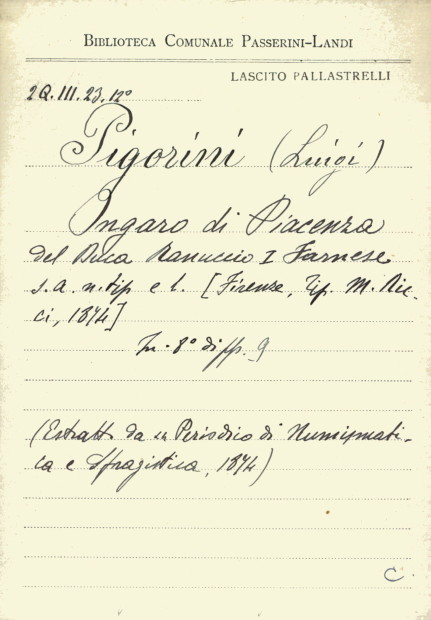 BIBLIOTECA COMUNALE PASSERINI-LANDI
LASCITO PALLASTRELLI
2Q.III.23.12°
Pigorini (Luigi)
Ongaro di Piacenza
del Duca Ranuccio I Farnese
s.a. n. tip e l. [Firenze, Tip. M. Ric-
ci, 1874]
In-8° di pp. 9
(Estratto da Periodico di Numismati-
ca e Sfragistica, 1874)
C